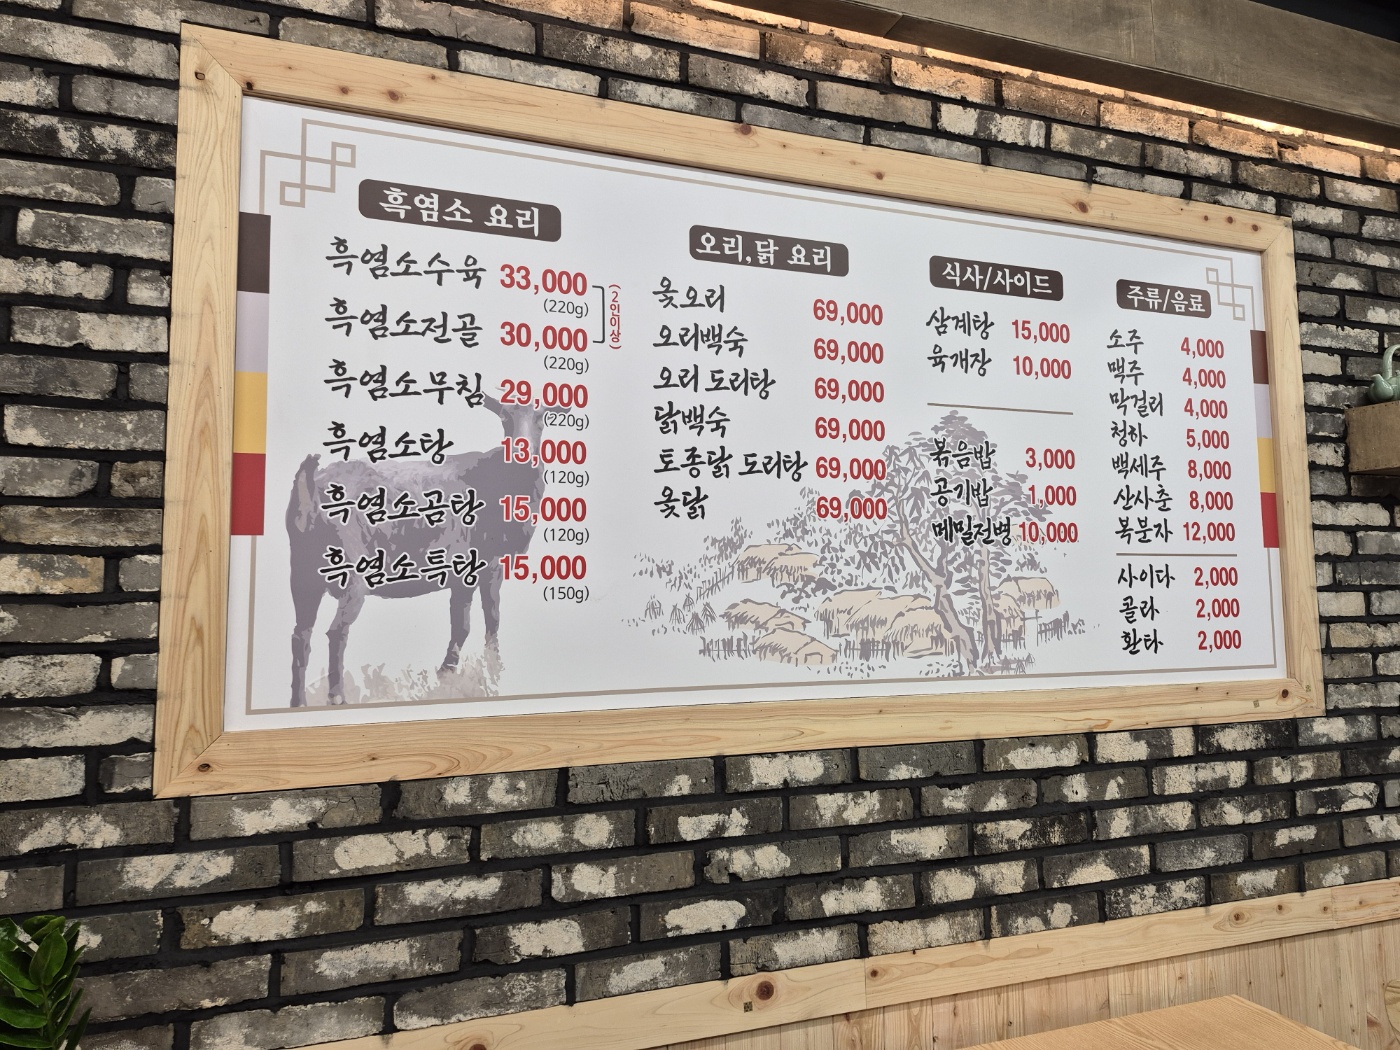 흑염소 요리
흑염소수육 33,000
(220g)
흑염소전골 30,000
(220g)
(2인이상)
흑염소무침 29,000
(220g)
흑염소탕 13,000
(120g)
흑염소곰탕 15,000
(120g)
흑염소특탕 15,000
(150g)
오리,닭 요리
옻오리 69,000
오리백숙 69,000
오리 도리탕 69,000
닭백숙 69,000
토종닭 도리탕 69,000
옻닭 69,000
식사/사이드
삼계탕 15,000
육개장 10,000
볶음밥 3,000
공기밥 1,000
메밀전병 10,000
주류/음료
소주 4,000
맥주 4,000
막걸리 4,000
청하 5,000
백세주 8,000
산사춘 8,000
복분자 12,000
사이다 2,000
콜라 2,000
환타 2,000